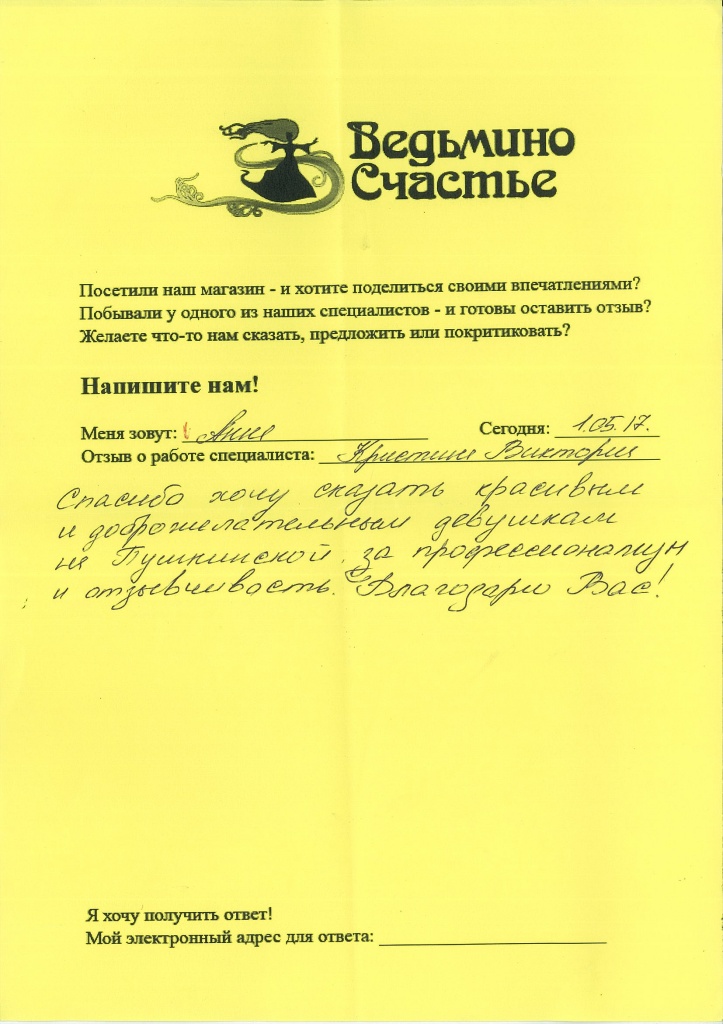 Ведьмино
Счастье
Посетили наш магазин - и хотите поделиться своими впечатлениями?
Побывали у одного из наших специалистов - и готовы оставить отзыв?
Желаете что-то нам сказать, предложить или покритиковать?
Напишите нам!
Меня зовут: Анна Сегодня: 1.05.17.
Отзыв о работе специалиста: Кристина Виктория
Спасибо хочу сказать красивым
и доброжелательным девушкам
на Пушкинской за профессионализм
и отзывчивость. Благодарю Вас!
Я хочу получить ответ!
Мой электронный адрес для ответа: